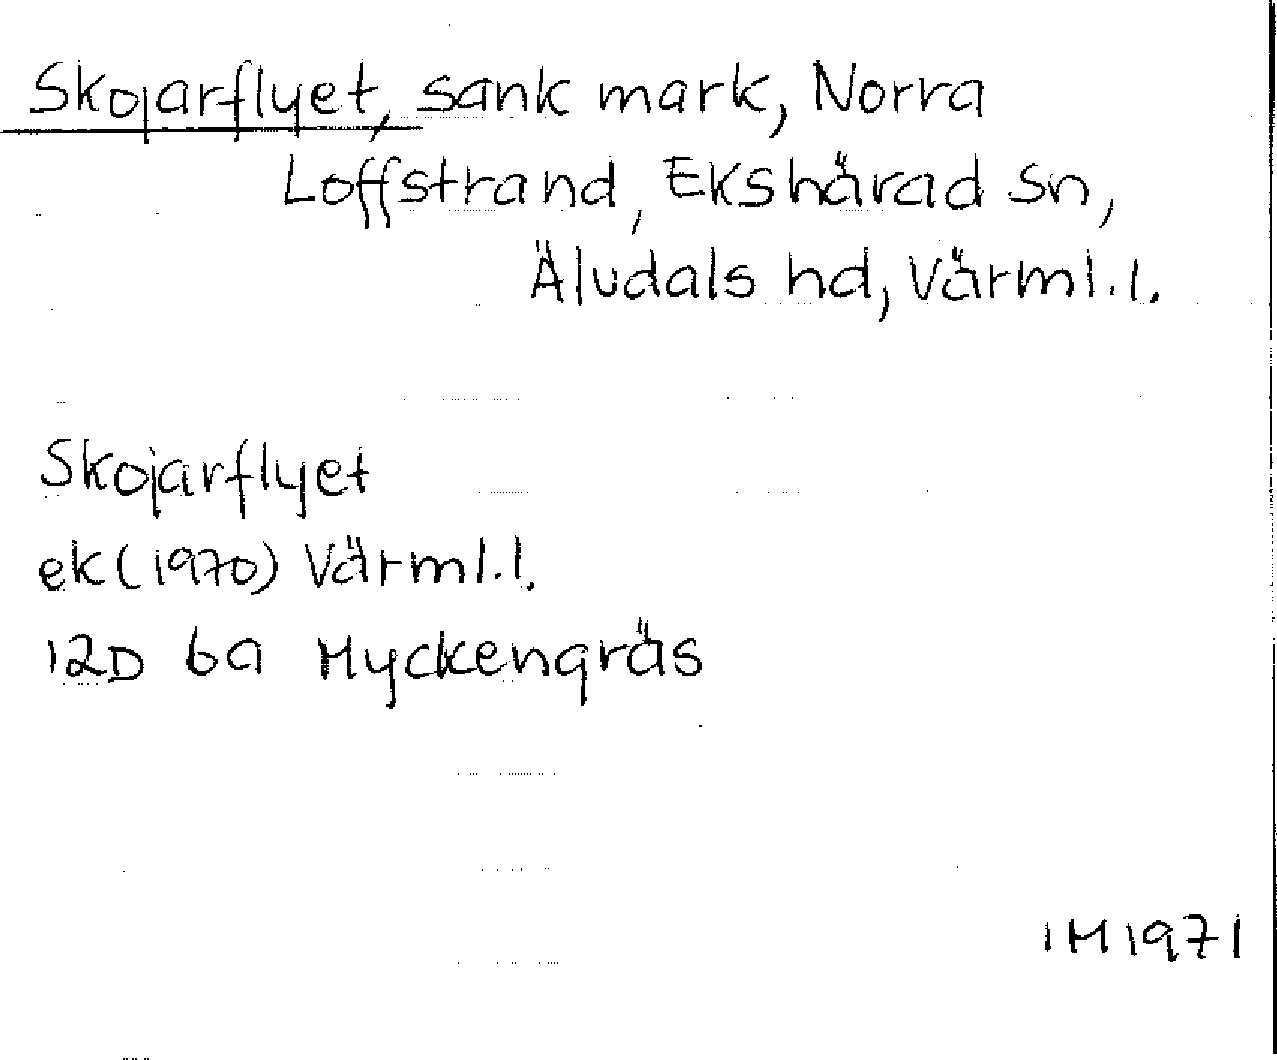 Skojarflyet, sank mark, Norra
Loffstrand, Ekshärad sn,
Älvdals hd, Värml. l.
Skojarflyet
ek (1970) Värml. l.
12D 6a Myckengräs
IM 1971